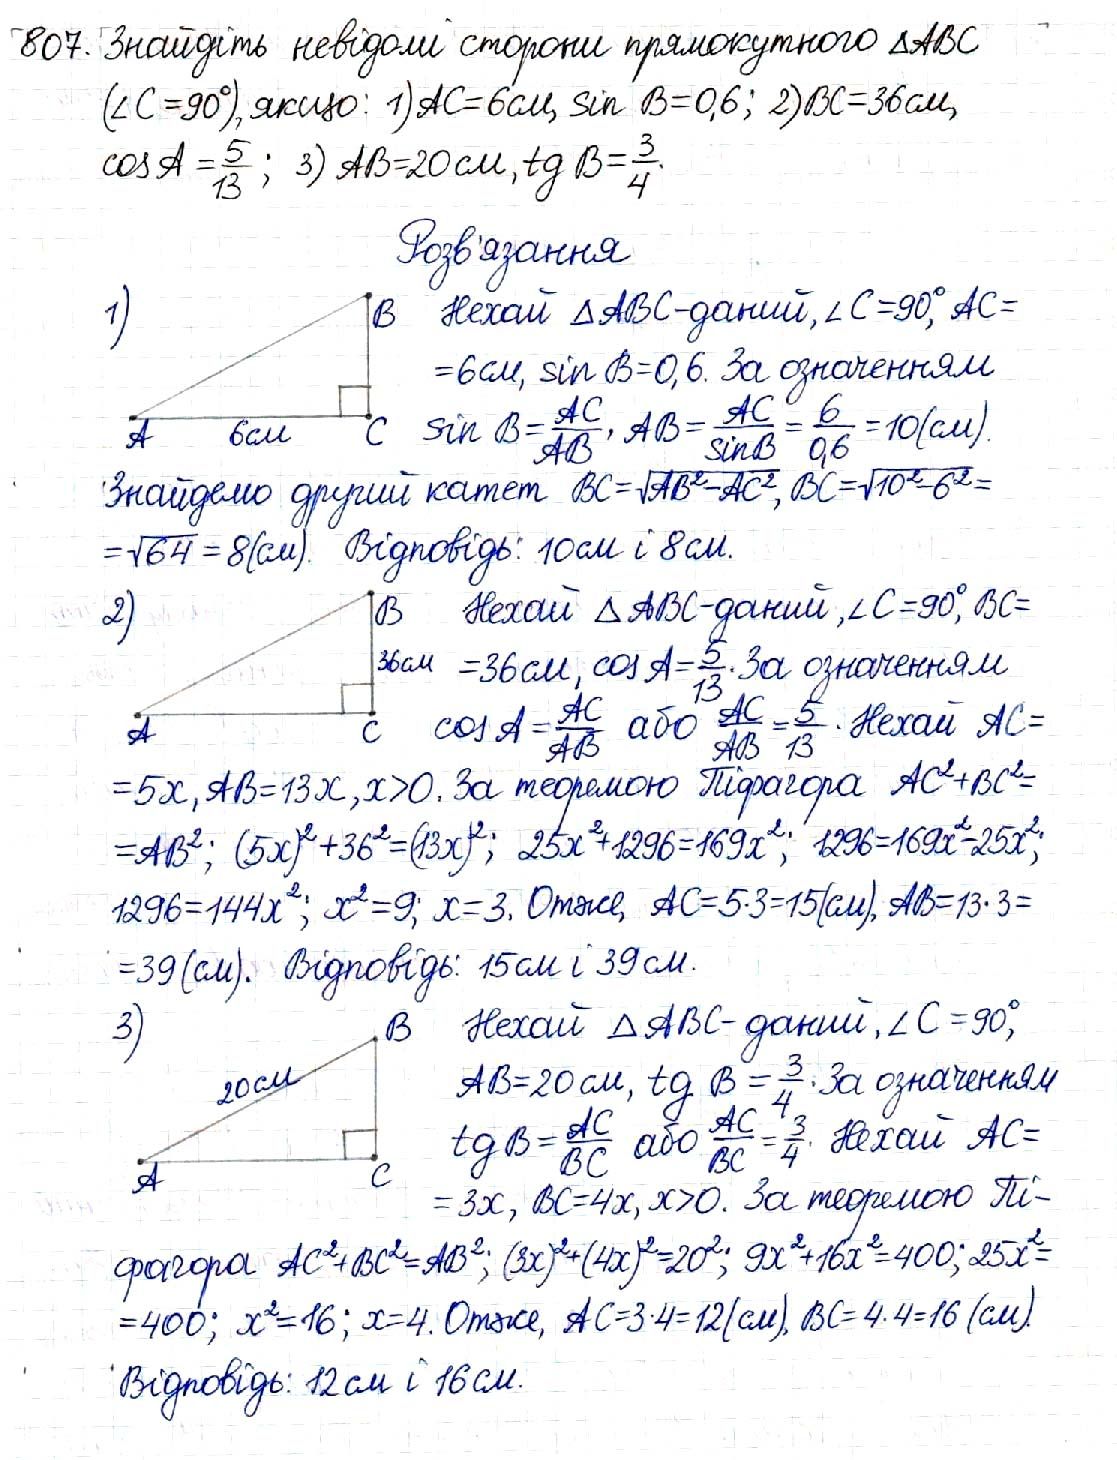 807. Знайдіть невідомі сторони прямокутного △ABC
(∠C=90°), якщо: 1) AC=6см, sin B=0,6; 2) BC=36см,
cos A = 5/13; 3) AB=20см, tg B = 3/4.
Розв'язання
1) Нехай △ABC-даний, ∠C=90°, AC=
=6см, sin B=0,6. За означенням
sin B = AC/AB, AB = AC/sinB = 6/0,6 = 10(см).
B
A 6см C
Знайдемо другий катет BC=√AB²-AC², BC=√10²-6²=
=√64 = 8(см). Відповідь: 10см і 8см.
2) Нехай △ABC-даний, ∠C=90°, BC=
=36см, cos A = 5/13. За означенням
cos A = AC/AB або AC/AB = 5/13. Нехай AC=
B
36см
A C
=5x, AB=13x, x>0. За теоремою Піфагора AC²+BC²=
=AB²; (5x)²+36²=(13x)²; 25x²+1296=169x²; 1296=169x²-25x²;
1296=144x²; x²=9; x=3. Отже, AC=5·3=15(см), AB=13·3=
=39(см). Відповідь: 15см і 39см.
3) Нехай △ABC- даний, ∠C=90°,
AB=20см, tg B = 3/4. За означенням
tg B = AC/BC або AC/BC = 3/4. Нехай AC=
=3x, BC=4x, x>0. За теоремою Пі-
B
20см
A C
фагора AC²+BC²=AB²; (3x)²+(4x)²=20²; 9x²+16x²=400; 25x²=
=400; x²=16; x=4. Отже, AC=3·4=12(см), BC=4·4=16 (см).
Відповідь: 12см і 16см.